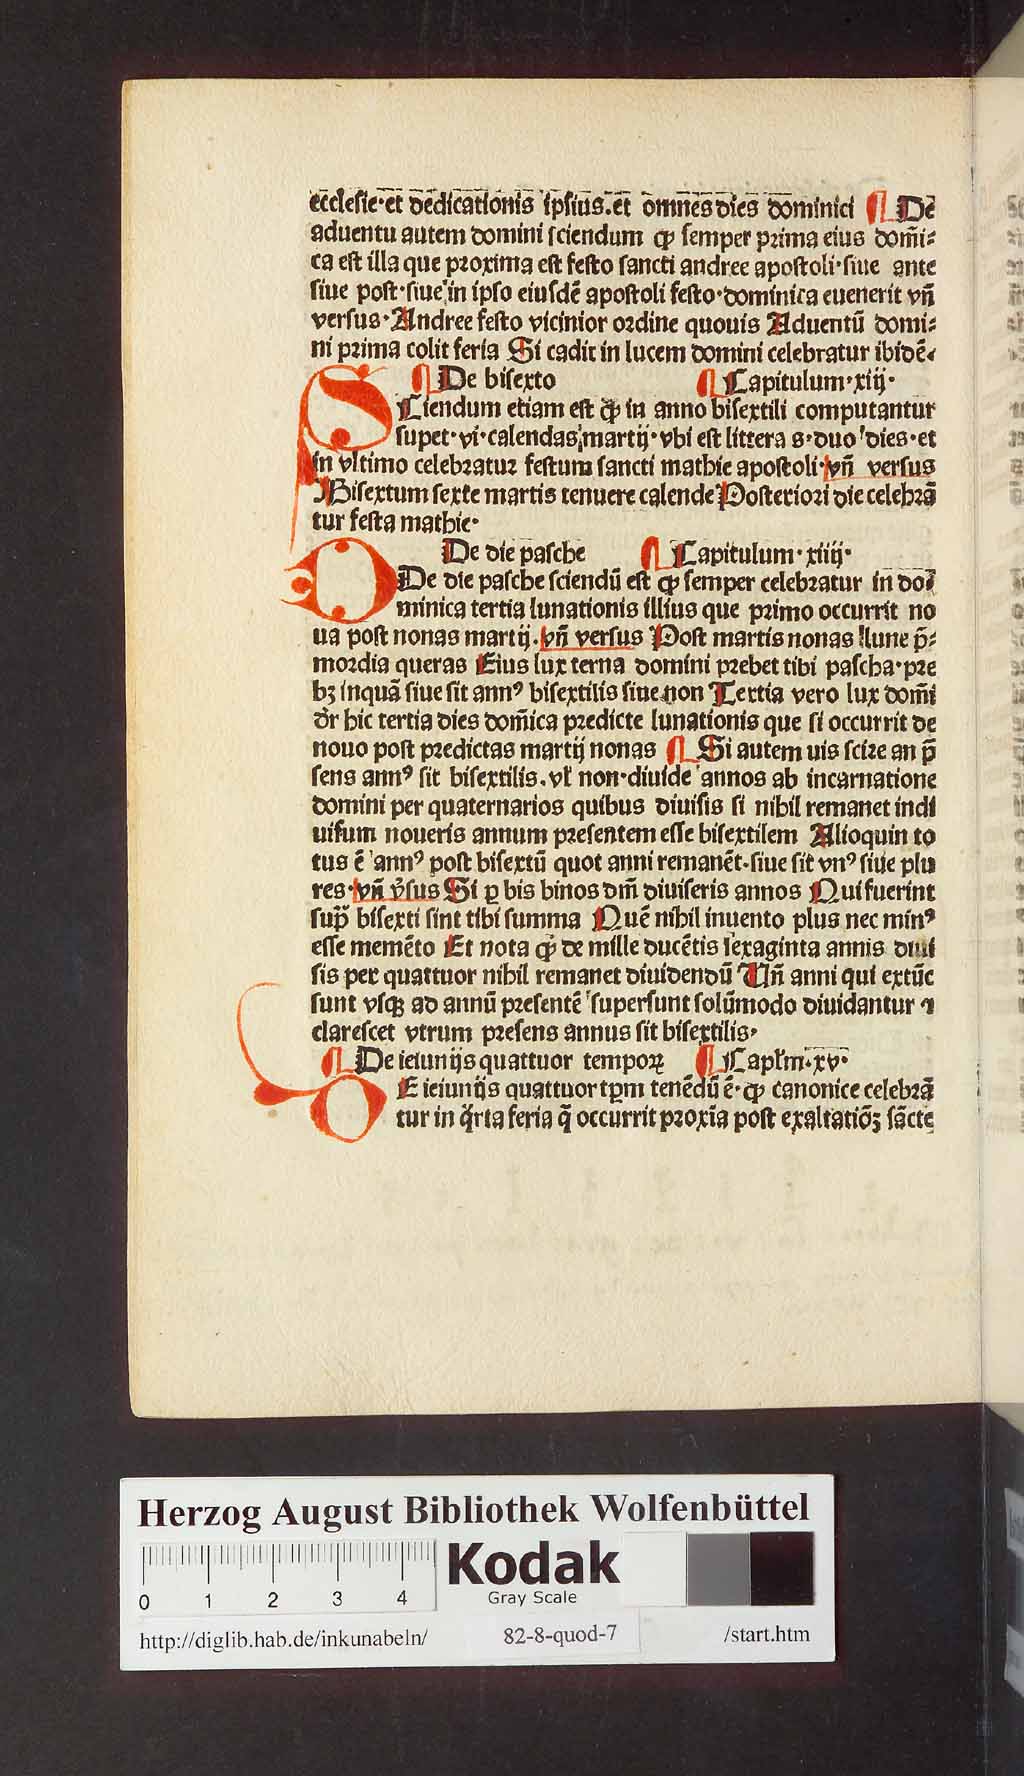 ecclesie·et dedicationis ipsius.et omnes dies dominici ¶ De
aduentu autem domini sciendum ꝙ semper prima eius dom̄i⸗
ca est illa que proxima est festo sancti andree apostoli·siue ante
siue post·siue in ipso eiusdē apostoli festo·dominica euenerit vn̄
versus·Andree festo vicinior ordine quouis Aduentū domi⸗
ni prima colit feria Si cadit in lucem domini celebratur ibidē·
¶ De bisexto ¶ Capitulum·xiij·
SCiendum etiam est ꝙ in anno bisextili computantur
supet·vi·calendas martij·vbi est littera s·duo dies·et
in vltimo celebratur festum sancti mathie apostoli·vn̄ versus
Bisextum sexte martis tenuere calende Posteriori die celebrā
tur festa mathie·
De die pasche ¶ Capitulum·xiiij·
DDe die pasche sciendū est ꝙ semper celebratur in do⸗
minica tertia lunationis illius que primo occurrit no
ua post nonas martij.vn̄ versus Post martis nonas lune p̄⸗
mordia queras Eius lux terna domini prebet tibi pascha·pre
bꝫ inquā siue sit annꝰ bisextilis siue non Tertia vero lux dom̄i
dr̄ hic tertia dies dom̄ica predicte lunationis que si occurrit de
nouo post predictas martij nonas ¶ Si autem uis scire an p̄
sens annꝰ sit bisextilis.vl' non·diuide annos ab incarnatione
domini per quaternarios quibus diuisis si nihil remanet indi
uisum noueris annum presentem esse bisextilem Alioquin to
tus ē annꝰ post bisextū quot anni remanēt·siue sit vnꝰ siue plu
res·vn̄ v̄sus Si ꝑ bis binos dm̄ diuiseris annos Qui fuerint
sup̄ bisexti sint tibi summa Quē nihil inuento plus nec minꝰ
esse memēto Et nota ꝙ de mille ducētis sexaginta annis diui
sis per quattuor nihil remanet diuidendū Vn̄ anni qui extūc
sunt vsqꝫ ad annū presentē supersunt solūmodo diuidantur ⁊
clarescet vtrum presens annus sit bisextilis·
¶ De ieiunijs quattuor temporꝝ ¶ Capl'm·xv·
DE ieiunijs quattuor tꝑm tenēdū ē·ꝙ canonice celebrā
tur in q̄rta feria q̄ occurrit proxīa post exaltatiōꝫ sācte
Herzog August Bibliothek Wolfenbüttel
0 1 2 3 4
Kodak
Gray Scale
http://diglib.hab.de/inkunabeln/ 82-8-quod-7 /start.htm